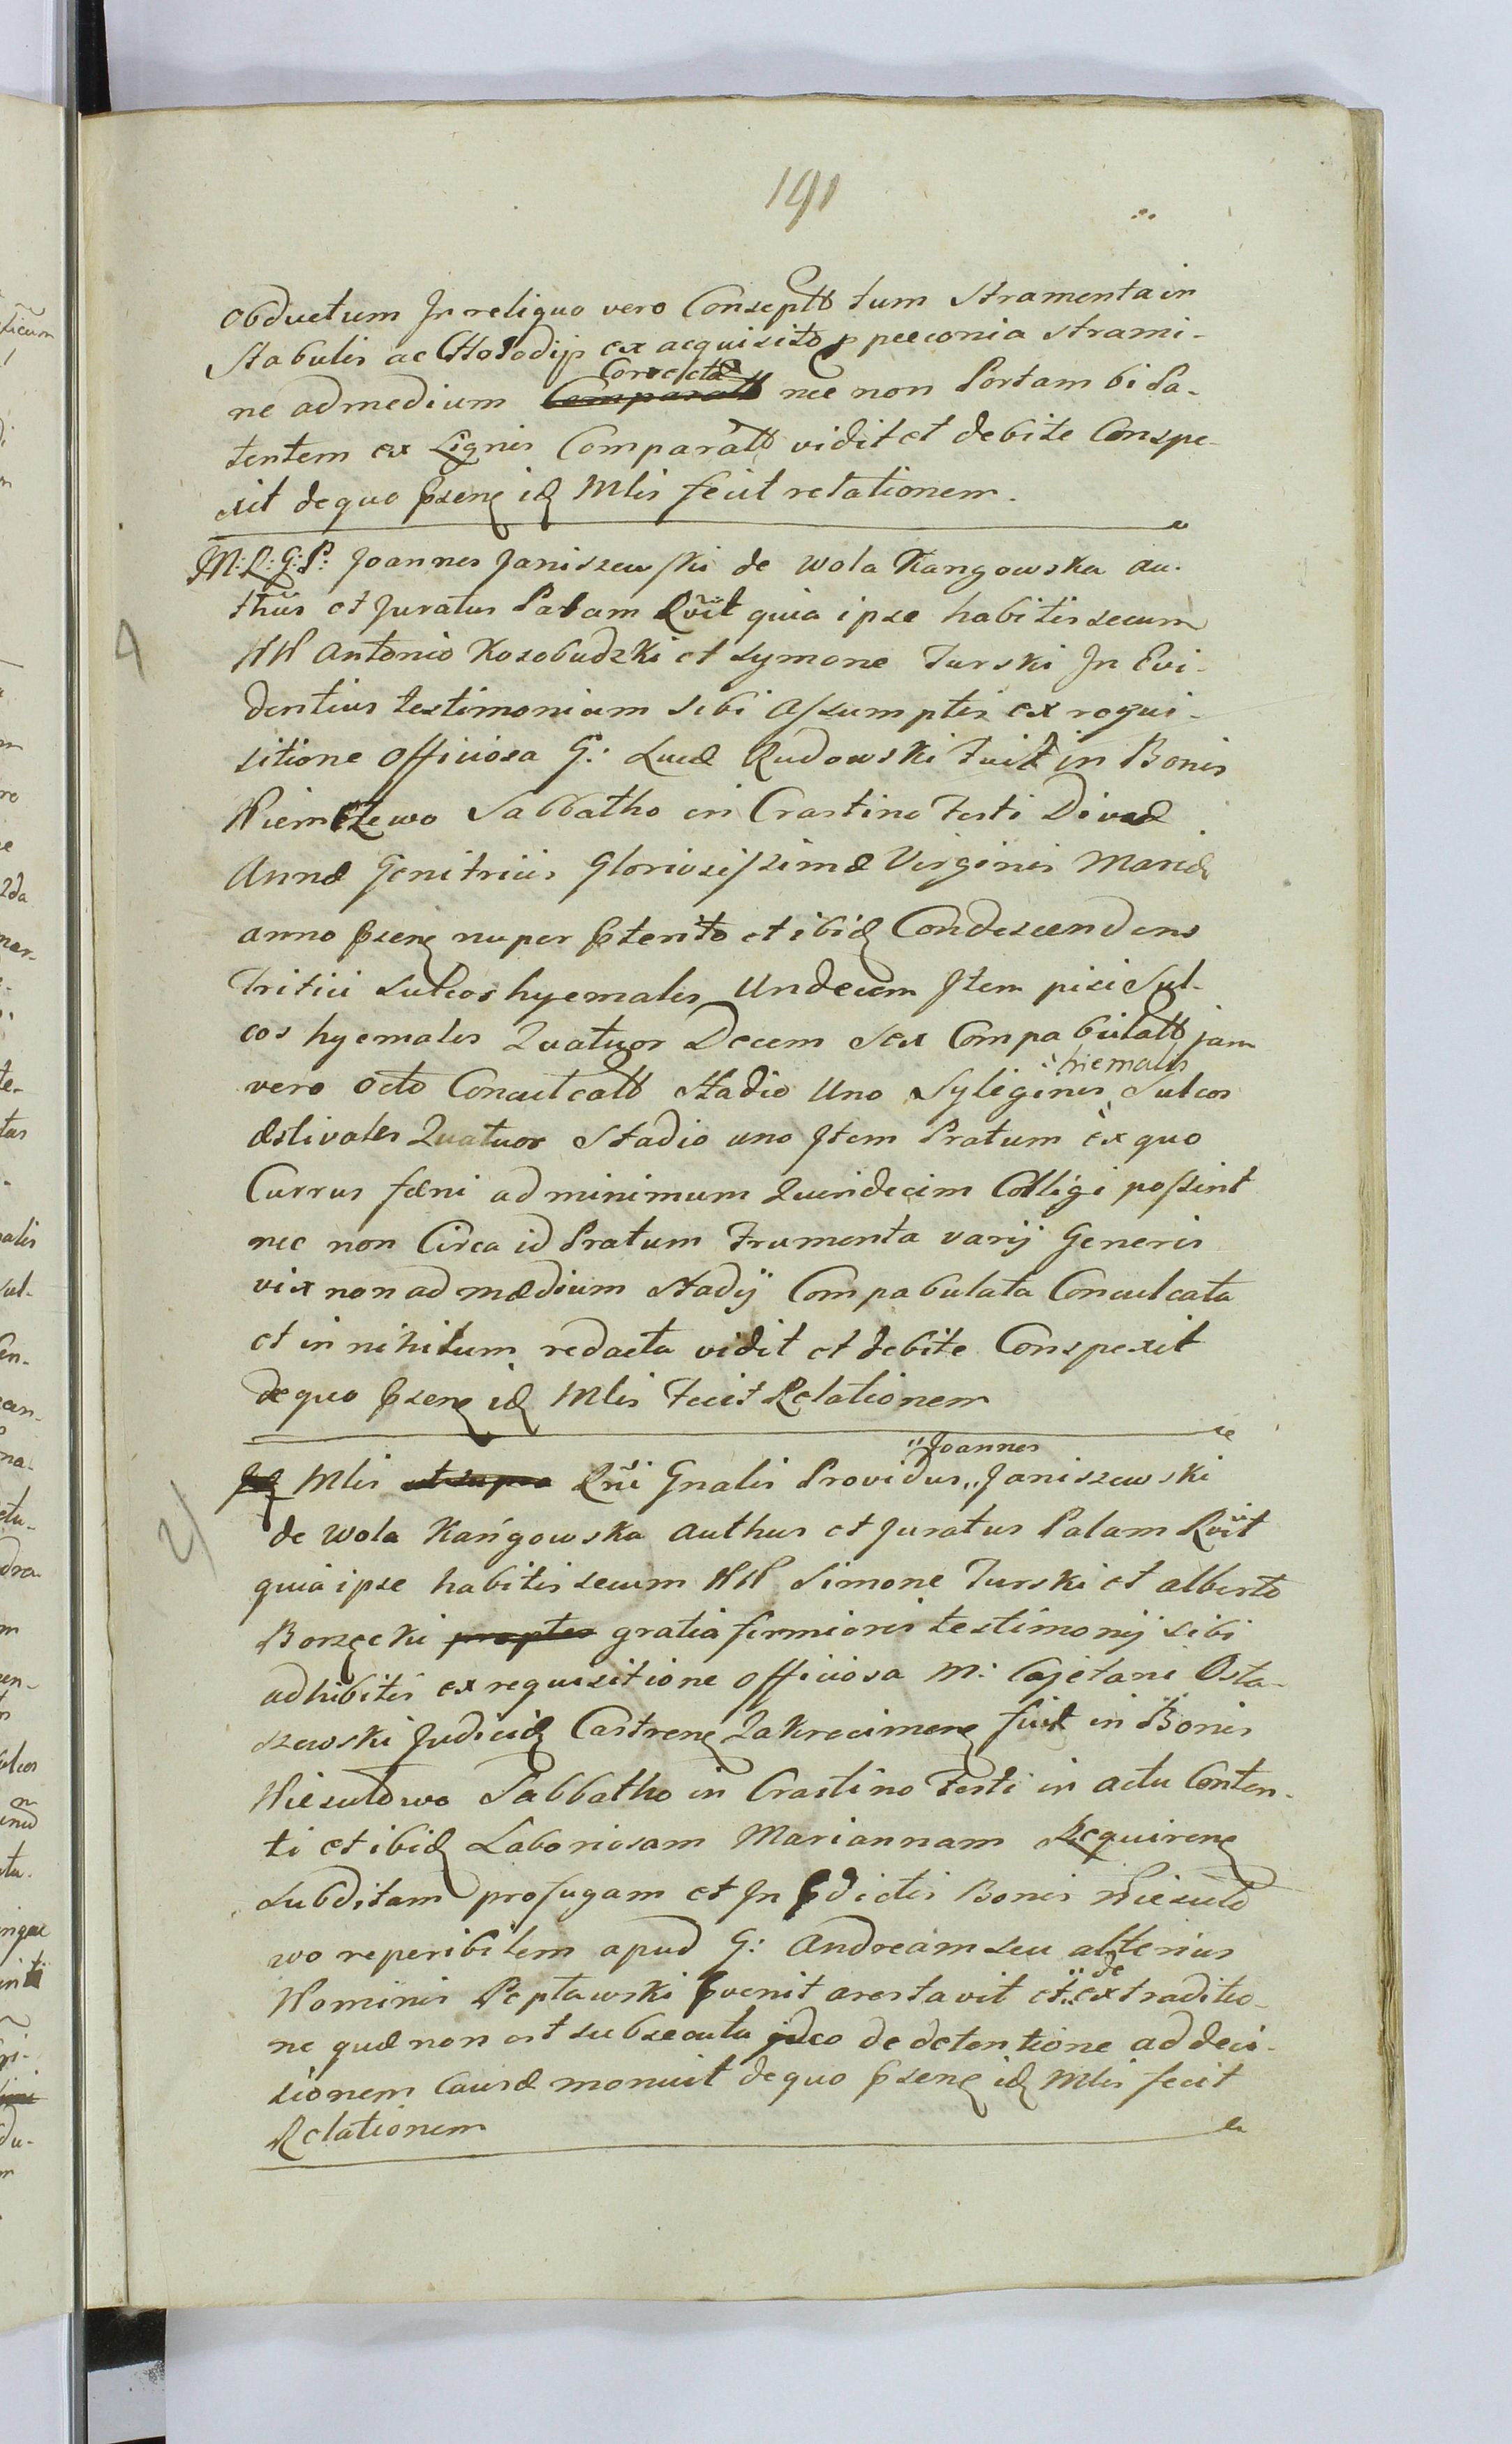 191
obductum In reliquo vero Conseptt tum Stramenta in
Stabulis ac Holodijs ex acquisito p peeconia strami-
Correcta
ne ad medium Comparatt nec non Portam bi Pa-
tentem ex Lignis Comparatt vidit et debite Conspe-
xit de quo psens id Mlis fecit relationem.
M: R: G: P: Joannes Janiszewski de Wola Kangowska au-
thus et Juratus Palam Rvit quia ipse habitis secum
NN Antonio Kosobudzki et Symone Turski In Evi-
dentius testimonium sibi assumptis ex requi-
sitione officiosa G: Lucæ Rudowski Fuit in Bonis
Niemczewo Sabbatho in Crastino Festi Divæ
Annæ Genitricis Gloriosissimæ Virginis Mariæ
anno psens nuper pterito et ibid Condescendens
Tritici Sulcos hyemales Undecem Item pisi Sul-
cos hyemales Quatuor Decem Sex Compabulatt jam
hiemalis
vero octo Conculcatt Stadio Uno Syliginis Sulcos
æstivales Quatuor Stadio uno Item Pratum ex quo
Currus fæni ad minimum Quindecim Colligi possint
nec non Circa id Pratum Frumenta varij Generis
vix non ad mædium Stadij Compabulata Conculcata
et in nihilum redacta vidit et debite Conspexit
de quo psens id Mlis Fecit Relationem
Joannes
Id Mlis ut supra Rni Gnalis Providus Janiszewski
de Wola Kańgowska Authus et Juratus Palam Rvit
quia ipse habitis secum NN Simone Turski et Alberto
Borzęcki propter gratia firmioris testimonij sibi
adhibitis ex requisitione officiosa M: Cajetani Osta-
szewski Judicid Castrens Zakrocimens fuit in Bonis
Niesułowo Sabbatho in Crastino Festi in actu Conten-
ti et ibid Laboriosam Mariannam Requirens
Subditam profugam et In pdictis Bonis Niesuło
wo reperibilem apud G: Andream seu alterius
de
Nominis Peptawski pvenit arestavit et extraditio-
ne quæ non est subsecuta ideo de detentione ad deci-
sionem Causæ monuit de quo psens id Mlis fecit
Relationem